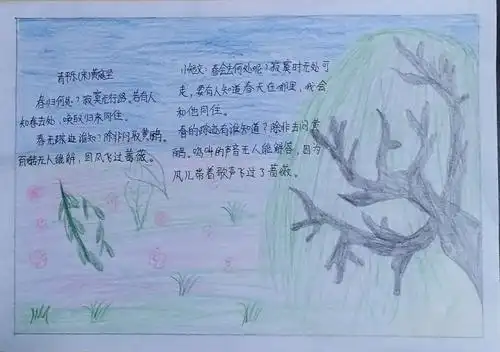 清平乐(宋)黄庭坚
春归何处?寂寞无行路。若有人
知春去处,唤取归来同住。
春无踪迹谁知?除非问取黄鹂。
百啭无人能解,因风飞过蔷薇。
小短文:春会去何处呢?寂寞时无处可
走,要有人知道春天在哪里,我会
和他同住。
春的踪迹有谁知道?除非去问黄
鹂。鸣叫的声音无人能解答,因为
风儿带着歌声飞过了蔷薇。